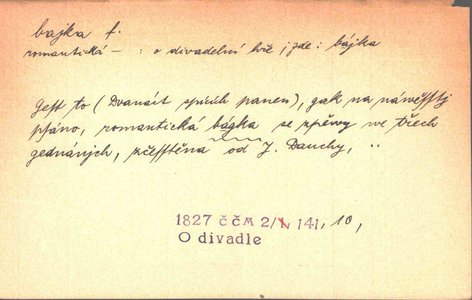 bajka f.
romantická — : o divadelní hře ; zde : bájka
Gest to (Dvanáct spících panen), gak na náwěsstj
psáno, romantická bágka se zpěwy we třech
gednánjch, zčesstěna od J. Dauchy, ..
1827 ČČM 2/1, 141, 10,
O divadle